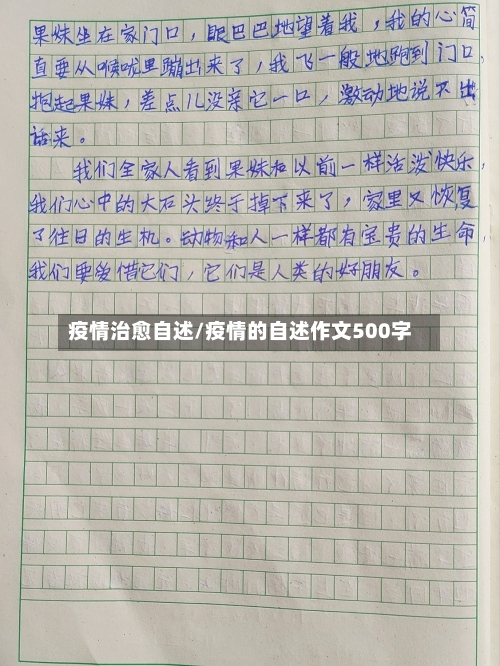 果妹坐在家门口，眼巴巴地望着我，我的心简
直要从喉咙里蹦出来了，我飞一般地跑到门口，
抱起果妹，差点儿没亲它一口，激动地说不出
话来。
我们全家人看到果妹和以前一样活泼快乐，
我们心中的大石头终于掉下来了，家里又恢复
了往日的生机。动物和人一样都有宝贵的生命，
我们要爱惜它们，它们是人类的好朋友。
疫情治愈自述/疫情的自述作文500字